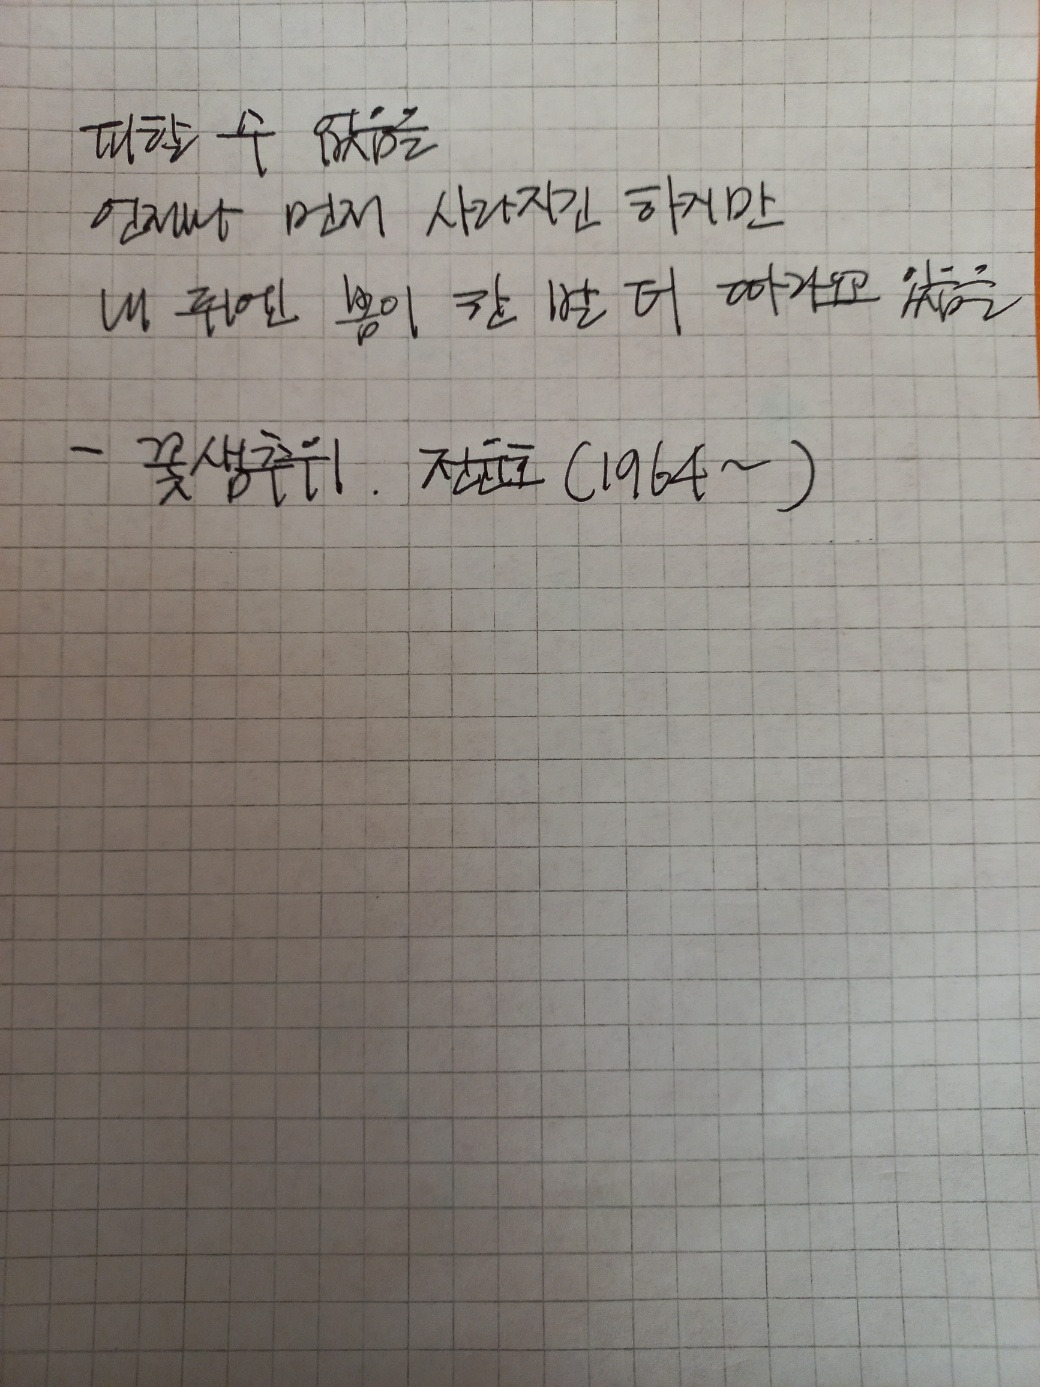 피할 수 없음을
언제나 먼저 사라지긴 하지만
내 뒤에는 봄이 한 발 더 다가오고 있음을
- 꽃샘추위. 전윤호 (1964~)